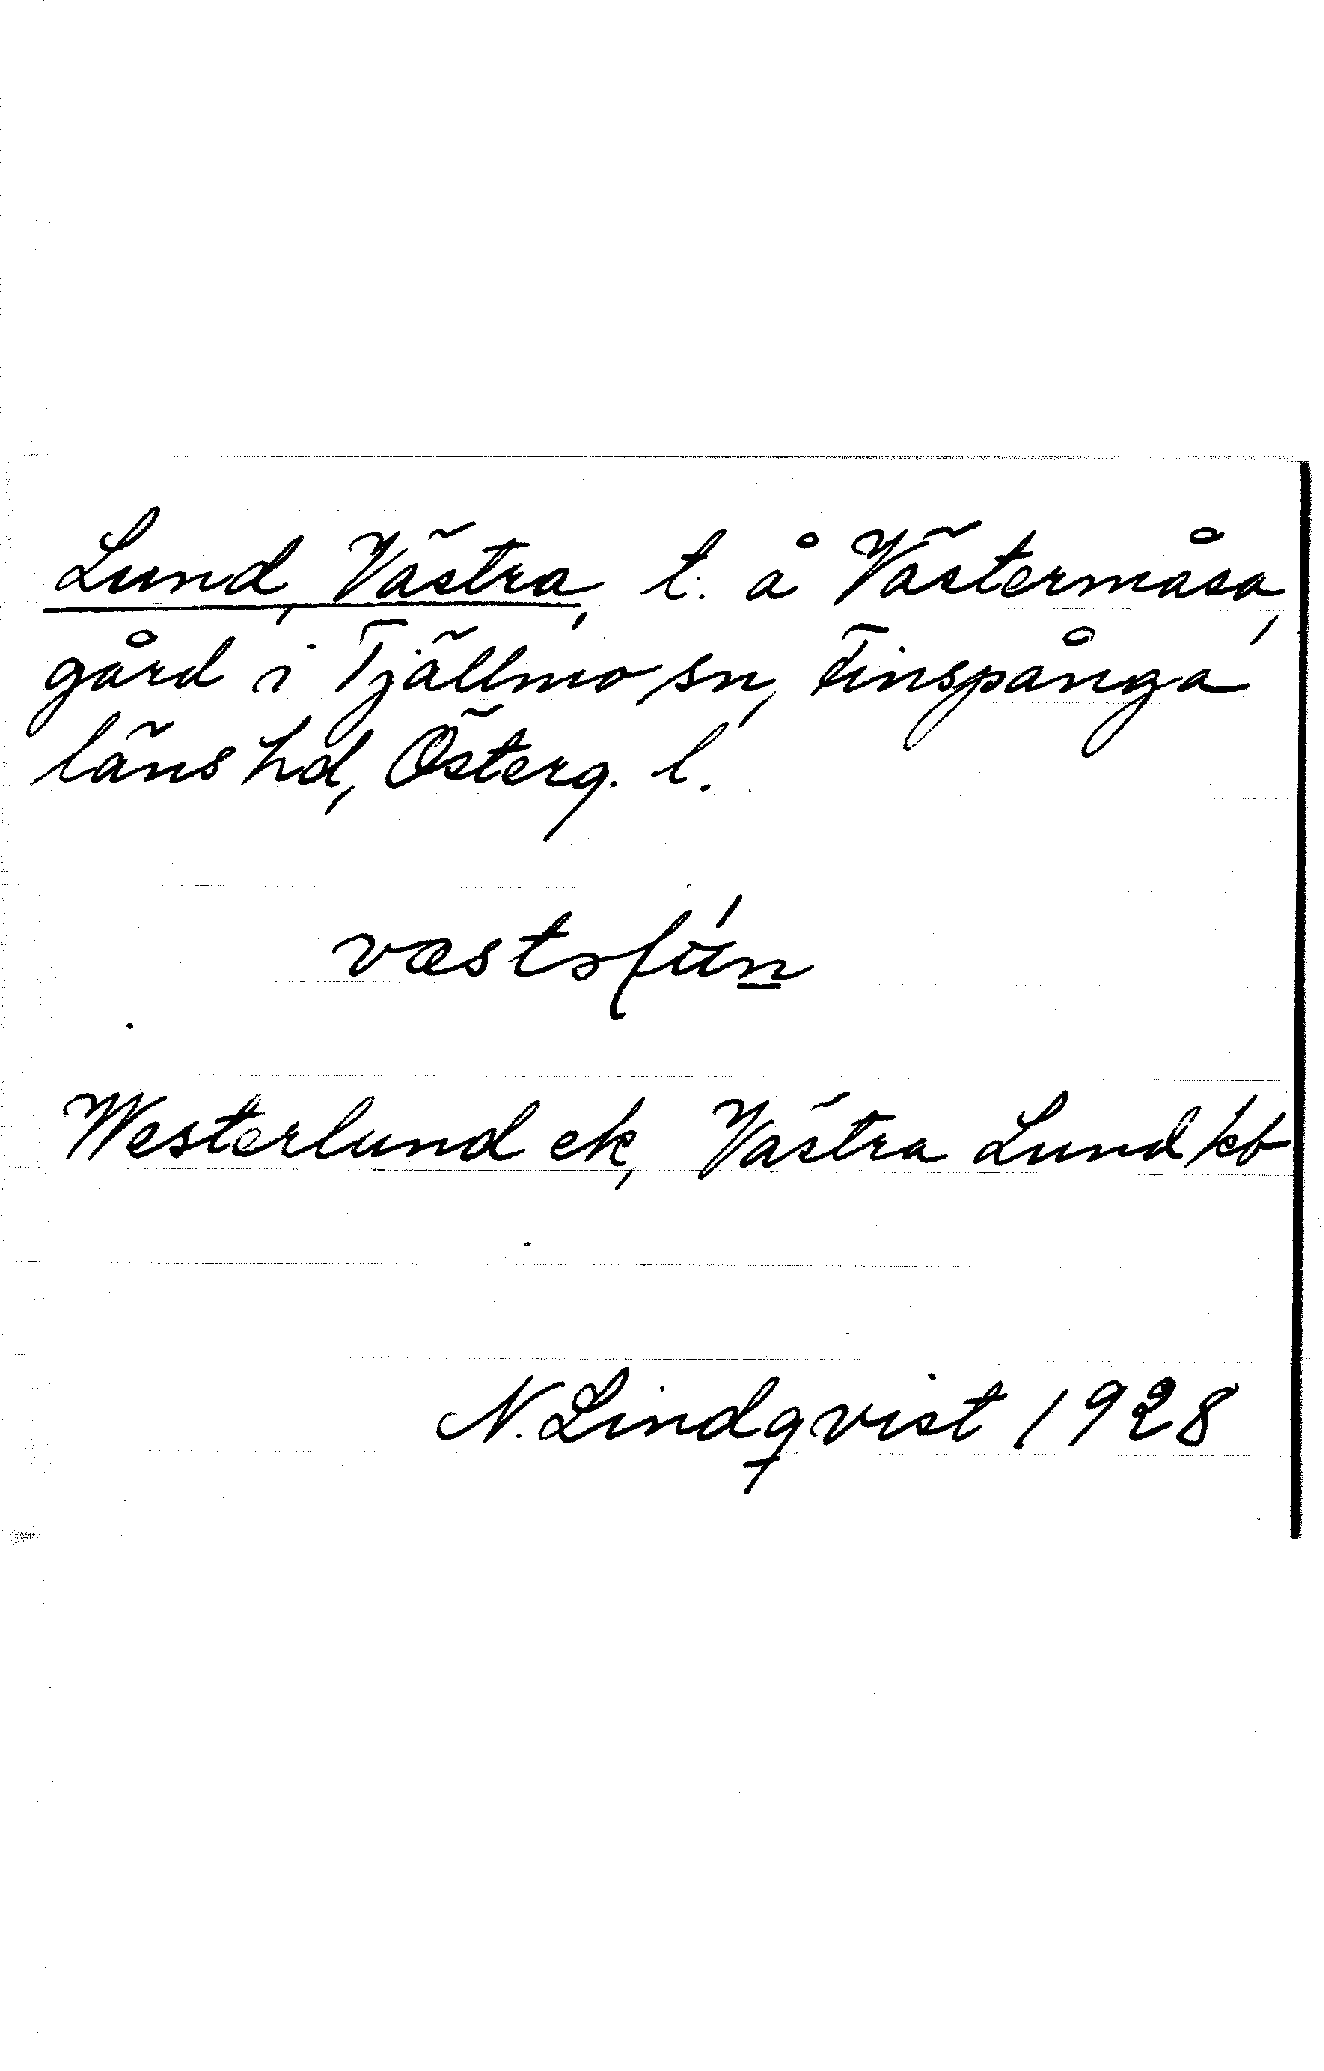 Lund, Västra, t. å Västermåsa,
gård i Tjällmo sn, Finspånga
läns hd, Österg. l.
Westerlund ek, Västra Lund kb
N. Lindqvist 1928